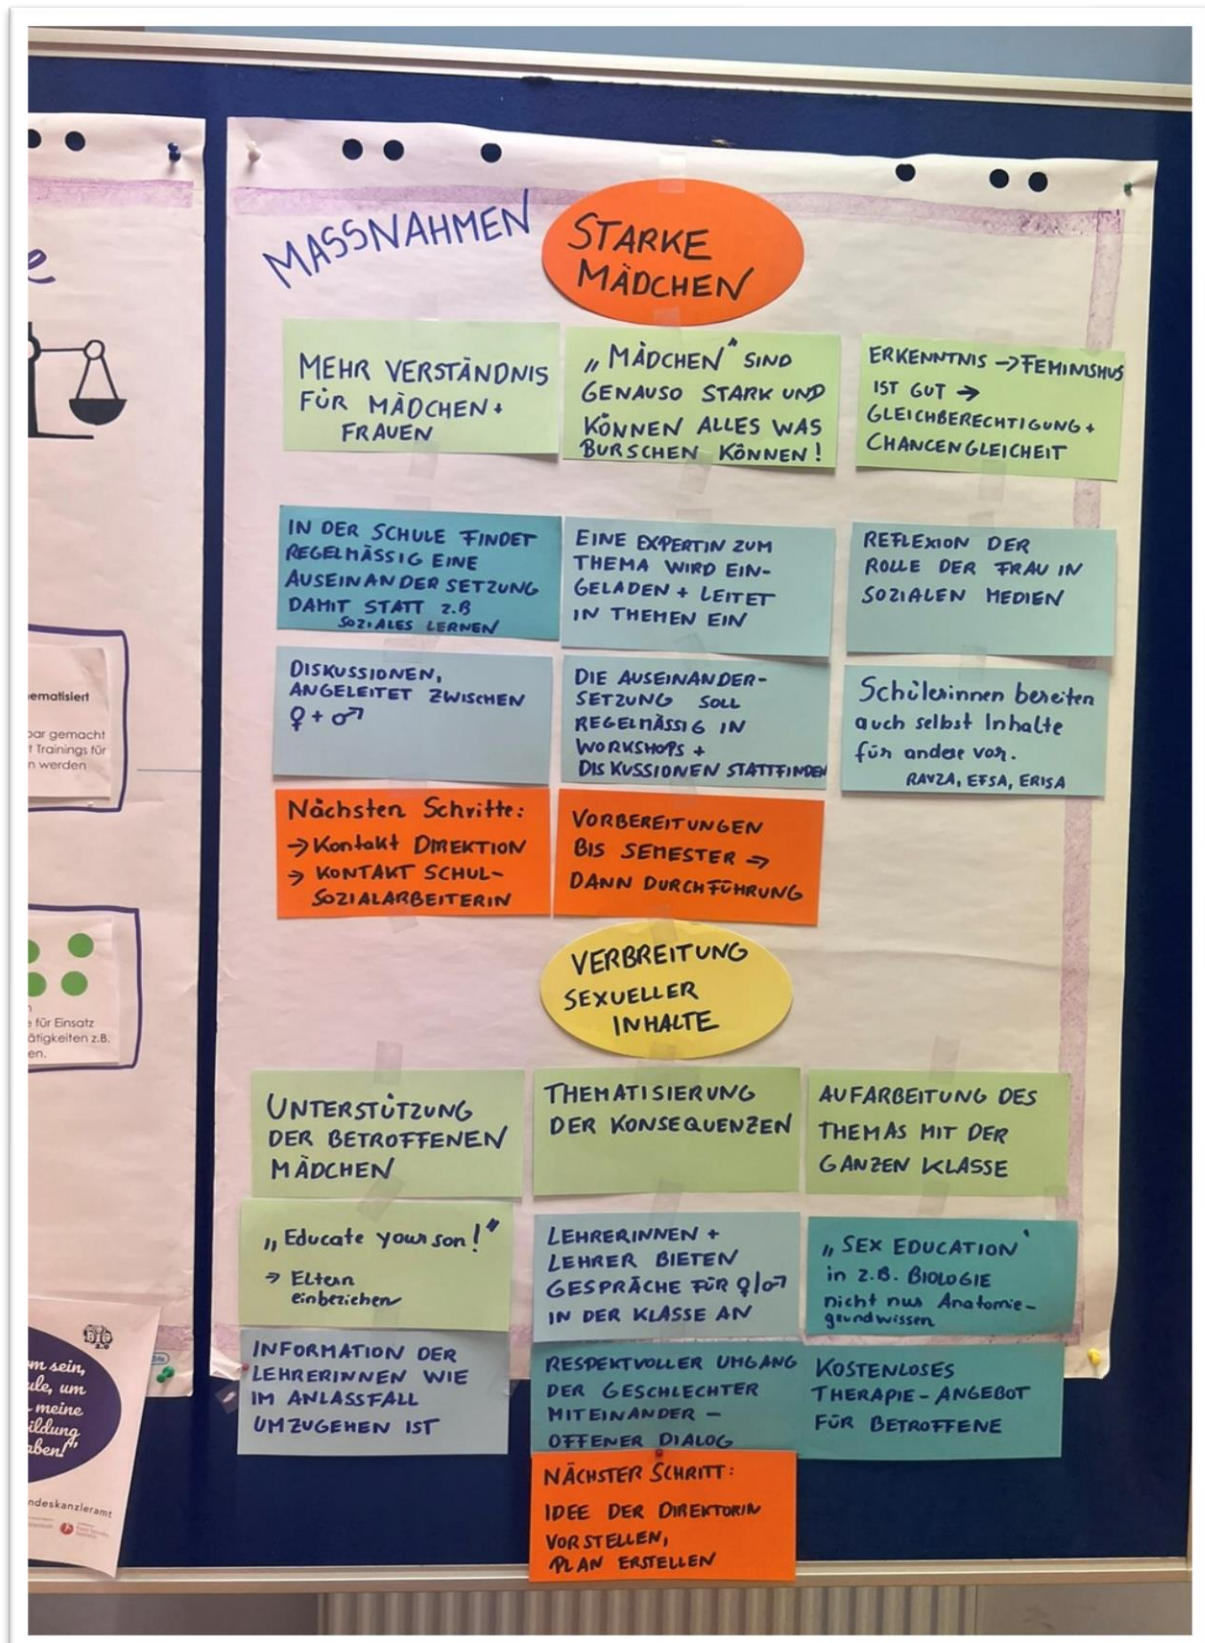 MASSNAHMEN
STARKE
MÄDCHEN
MEHR VERSTÄNDNIS
FÜR MÄDCHEN +
FRAUEN
„MÄDCHEN“ SIND
GENAUSO STARK UND
KÖNNEN ALLES WAS
BURSCHEN KÖNNEN!
ERKENNTNIS → FEMINISMUS
IST GUT →
GLEICHBERECHTIGUNG +
CHANCENGLEICHEIT
IN DER SCHULE FINDET
REGELMÄSSIG EINE
AUSEINANDERSETZUNG
DAMIT STATT z.B
SOZIALES LERNEN
EINE EXPERTIN ZUM
THEMA WIRD EIN-
GELADEN + LEITET
IN THEMEN EIN
REFLEXION DER
ROLLE DER FRAU IN
SOZIALEN MEDIEN
DISKUSSIONEN,
ANGELEITET ZWISCHEN
♀ + ♂
DIE AUSEINANDER-
SETZUNG SOLL
REGELMÄSSIG IN
WORKSHOPS +
DISKUSSIONEN STATTFINDEN
Schülerinnen bereiten
auch selbst Inhalte
für andere vor.
RAVZA, EFSA, ERISA
Nächsten Schritte:
→ Kontakt DIREKTION
→ KONTAKT SCHUL-
SOZIALARBEITERIN
VORBEREITUNGEN
BIS SEMESTER →
DANN DURCHFÜHRUNG
VERBREITUNG
SEXUELLER
INHALTE
UNTERSTÜTZUNG
DER BETROFFENEN
MÄDCHEN
THEMATISIERUNG
DER KONSEQUENZEN
AUFARBEITUNG DES
THEMAS MIT DER
GANZEN KLASSE
„Educate your son!“
→ Eltern
einbeziehen
LEHRERINNEN +
LEHRER BIETEN
GESPRÄCHE FÜR ♀/♂
IN DER KLASSE AN
„SEX EDUCATION‘
in z.B. BIOLOGIE
nicht nur Anatomie-
grundwissen
INFORMATION DER
LEHRERINNEN WIE
IM ANLASSFALL
UMZUGEHEN IST
RESPEKTVOLLER UMGANG
DER GESCHLECHTER
MITEINANDER –
OFFENER DIALOG
KOSTENLOSES
THERAPIE-ANGEBOT
FÜR BETROFFENE
NÄCHSTER SCHRITT:
IDEE DER DIREKTORIN
VORSTELLEN,
PLAN ERSTELLEN
e
ematisiert
bar gemacht
t Trainings für
n werden
e für Einsatz
ätigkeiten z.B.
en.
m sein,
ule, um
meine
ildung
aben!“
ndeskanzleramt